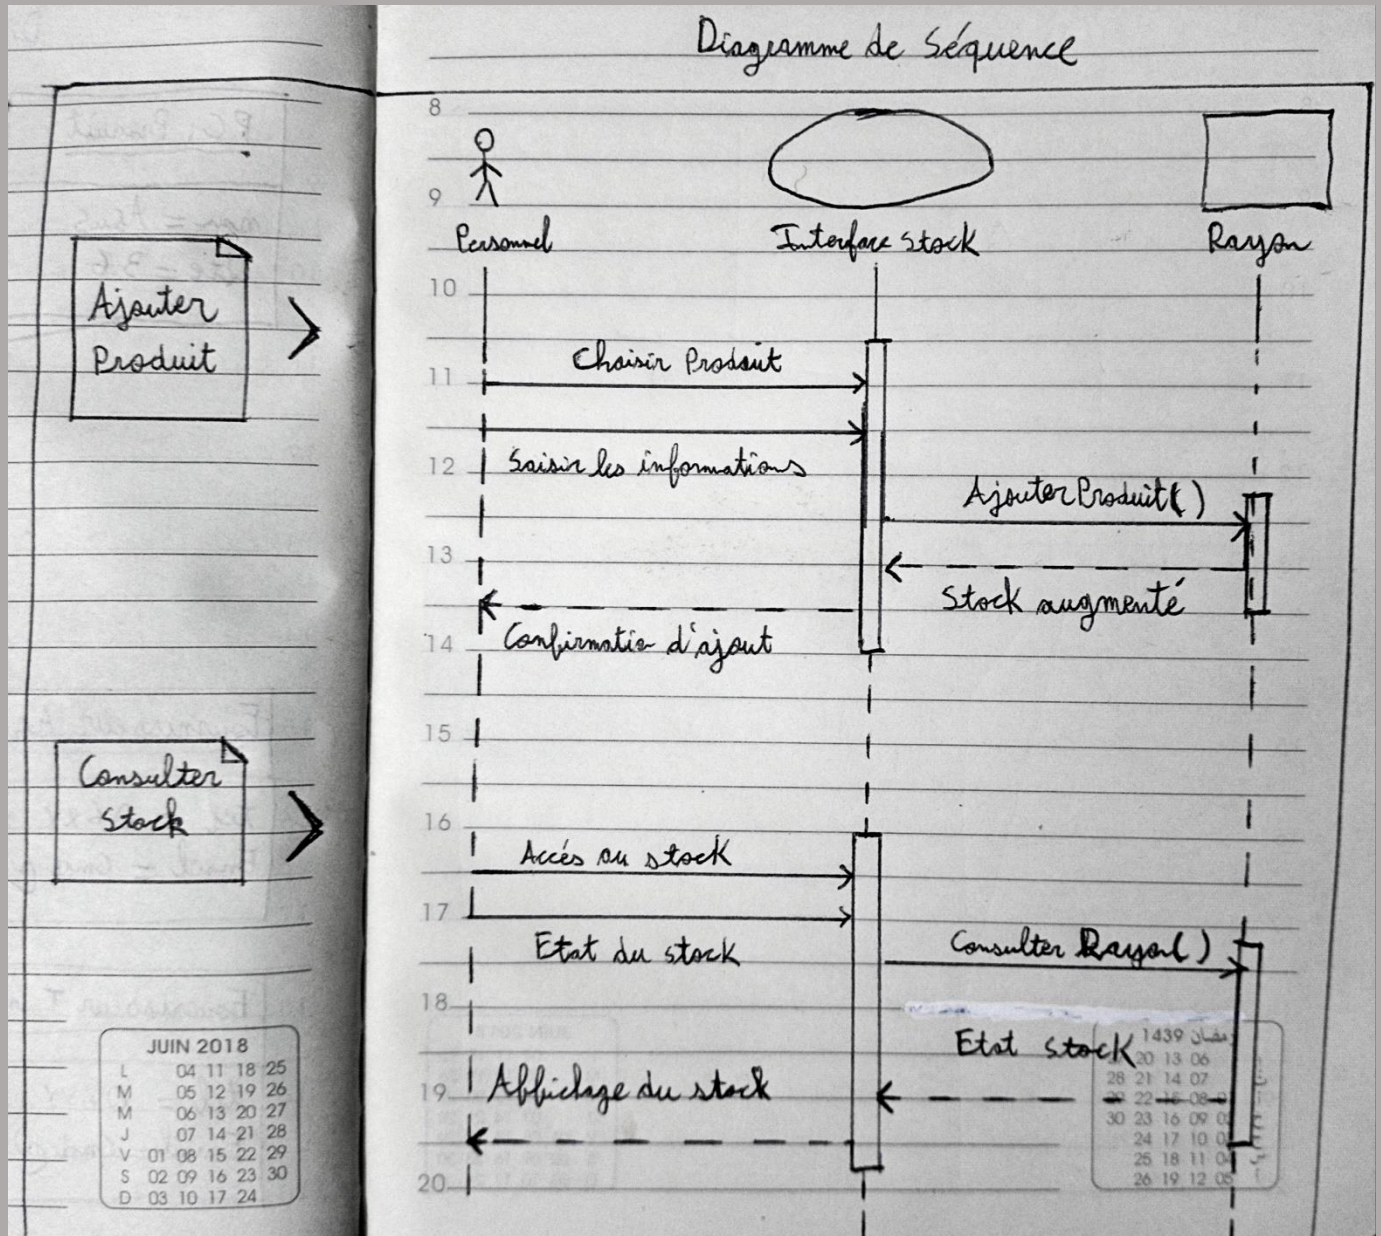 Diagramme de Séquence
8
9
Personnel
Interface Stock
Rayon
10
Ajouter
Produit
Choisir Produit
11
Saisir les informations
12
AjouterProduit()
13
Stock augmenté
Confirmation d'ajout
14
15
Consulter
Stock
16
Accés au stock
17
Etat du stock
Consulter Rayon()
18
Etat stock
Affichage du stock
19
20
JUIN 2018
L 04 11 18 25
M 05 12 19 26
M 06 13 20 27
J 07 14 21 28
V 01 08 15 22 29
S 02 09 16 23 30
D 03 10 17 24
1439 رمضان
20 13 06
28 21 14 07
29 22 15 08
30 23 16 09
24 17 10
25 18 11 04
26 19 12 05